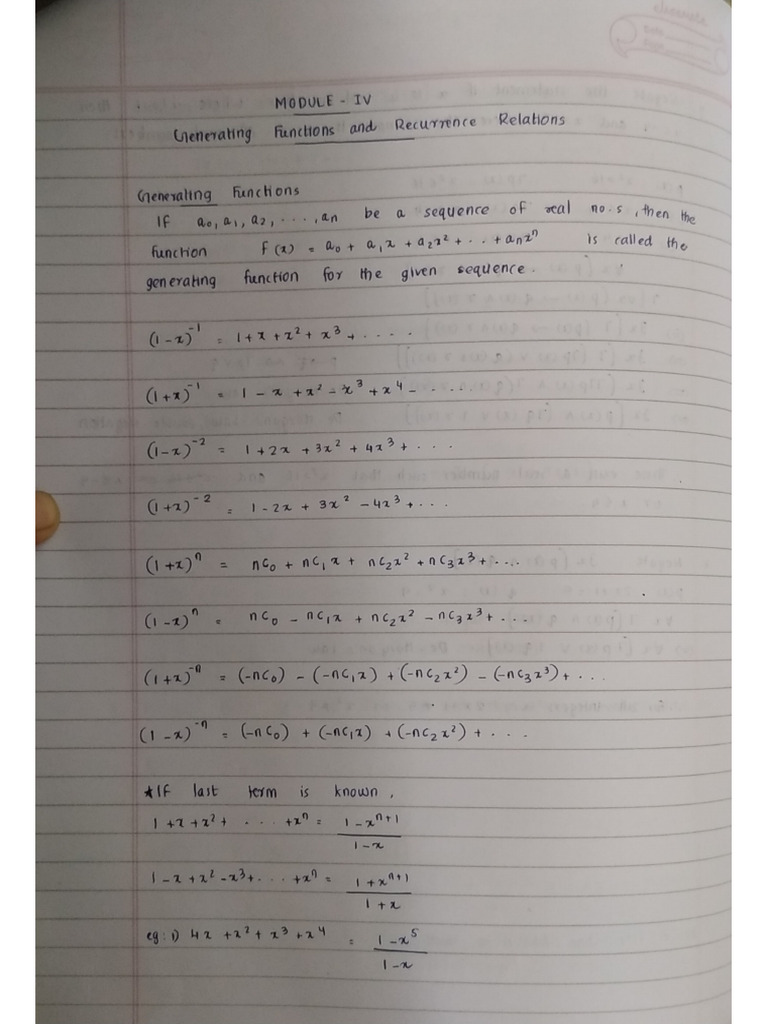 MODULE - IV
Generating Functions and Recurrence Relations
Generating Functions
If a₀, a₁, a₂, ..., aₙ be a sequence of real no.s, then the
function f(x) = a₀ + a₁x + a₂x² + ... + aₙxⁿ is called the
generating function for the given sequence.
(1-x)⁻¹ = 1 + x + x² + x³ + ....
(1+x)⁻¹ = 1 - x + x² - x³ + x⁴ - .....
(1-x)⁻² = 1 + 2x + 3x² + 4x³ + ...
(1+x)⁻² = 1 - 2x + 3x² - 4x³ + ...
(1+x)ⁿ = nC₀ + nC₁x + nC₂x² + nC₃x³ + ...
(1-x)ⁿ = nC₀ - nC₁x + nC₂x² - nC₃x³ + ...
(1+x)⁻ⁿ = (-nC₀) - (-nC₁x) + (-nC₂x²) - (-nC₃x³) + ...
(1-x)⁻ⁿ = (-nC₀) + (-nC₁x) + (-nC₂x²) + ...
★If last term is known,
1 + x + x² + .... + xⁿ = (1-xⁿ⁺¹)/(1-x)
1 - x + x² - x³ + ... + xⁿ = (1+xⁿ⁺¹)/(1+x)
eg: 1) 4x + x² + x³ + x⁴ = (1-x⁵)/(1-x)